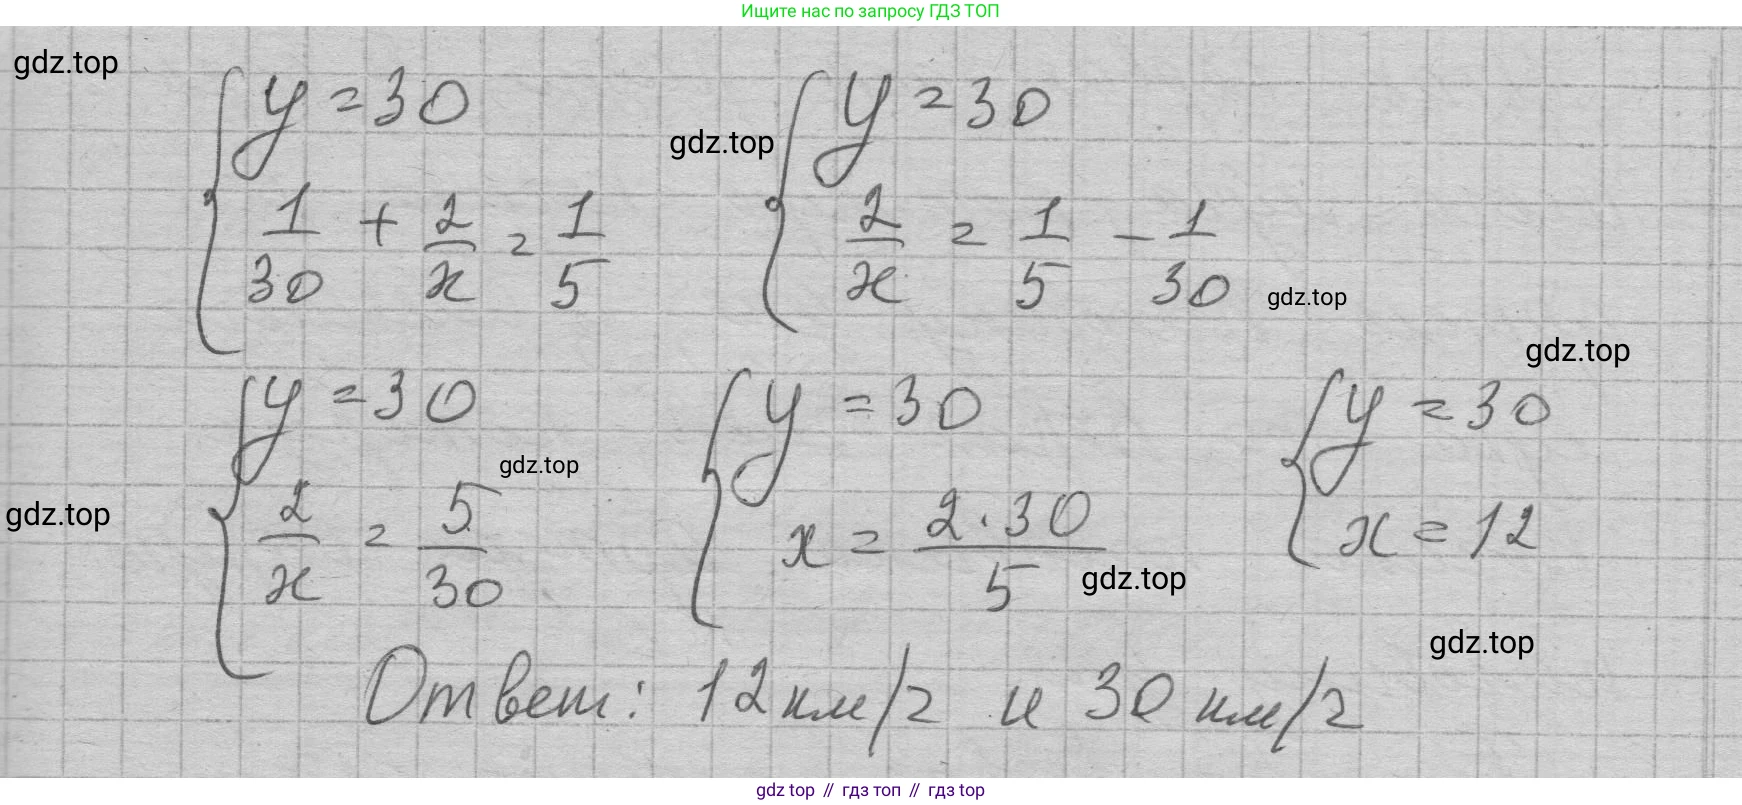 Ищите нас по запросу ГДЗ ТОП
gdz.top
{ y = 30
1/30 + 2/x = 1/5
gdz.top
{ y = 30
2/x = 1/5 - 1/30
gdz.top
gdz.top
{ y = 30
2/x = 5/30
gdz.top
gdz.top
{ y = 30
x = 2·30/5
gdz.top
{ y = 30
x = 12
gdz.top
Ответ: 12 км/ч и 30 км/ч
gdz top // гдз топ // gdz top